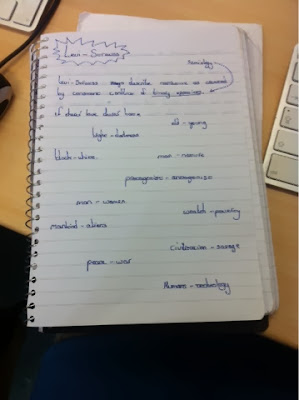 Levi - Strauss
Semiology
Levi-Strauss describe narrative as created
by constant conflict of binary opposites.
old - young
light - darkness
black - white
man - nature
protagonist - antagonist
man - woman
wealth - poverty
mankind - aliens
Civilization - savage
peace - war
Humans - technology